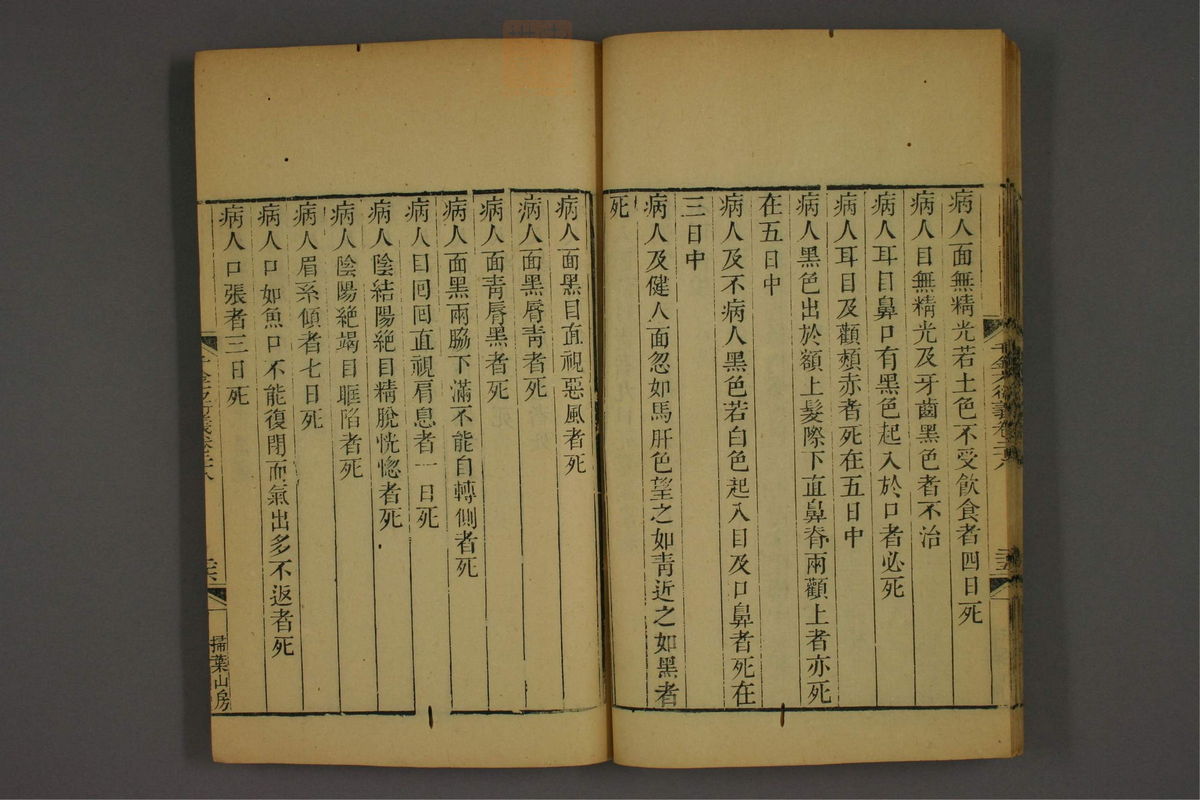 病人面無精光若土色不受飲食者四日死
病人目無精光及牙齒黑色者不治
病人耳目鼻口有黑色起入於口者必死
病人耳目及顴頰赤者死在五日中
病人黑色出於額上髮際下直鼻脊兩顴上者亦死
在五日中
病人及不病人黑色若白色起入目及口鼻者死在
三日中
病人及健人面忽如馬肝色望之如靑近之如黑者
死
病人面黑目直視惡風者死
病人面黑脣靑者死
病人面靑脣黑者死
病人面黑兩脇下滿不能自轉側者死
病人目回回直視肩息者一日死
病人陰結陽絶目精脫恍惚者死
病人陰陽絶竭目眶陷者死
病人眉系傾者七日死
病人口如魚口不能復閉而氣出多不返者死
病人口張者三日死
掃葉山房